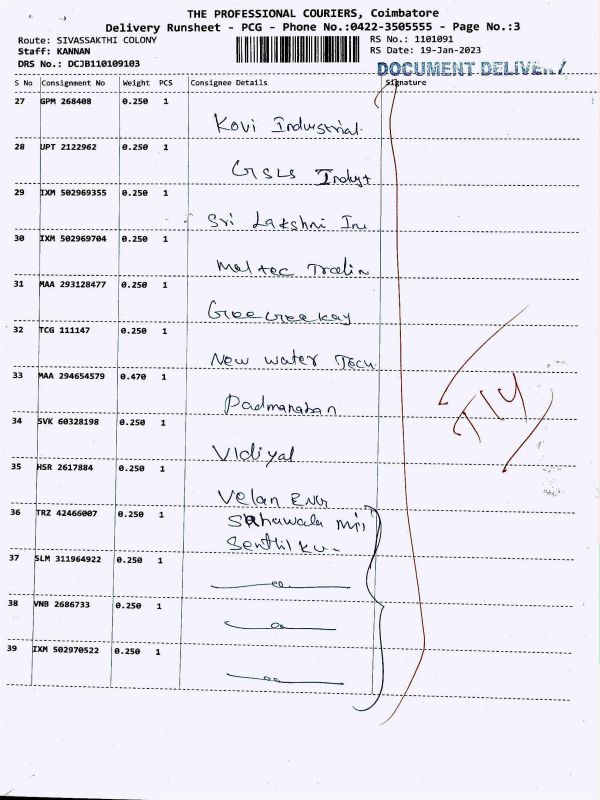 THE PROFESSIONAL COURIERS, Coimbatore
Delivery Runsheet - PCG - Phone No.:0422-3505555 - Page No.:3
Route: SIVASSAKTHI COLONY RS No.: 1101091
Staff: KANNAN RS Date: 19-Jan-2023
DRS No.: DCJB110109103 DOCUMENT DELIVERY
S No Consignment No Weight PCS Consignee Details Signature
27 GPM 268408 0.250 1
Kovi Industrial
28 UPT 2122962 0.250 1
GSLS Indyt
29 IXM 502969355 0.250 1
Sri Lakshni Inu
30 IXM 502969704 0.250 1
Mel tec Tradin
31 MAA 293128477 0.250 1
Gee Gee Kay
32 TCG 111147 0.250 1
New water Tech
33 MAA 294654579 0.470 1
Padmanaban
34 SVK 60328198 0.250 1
Vidiyal
35 HSR 2617884 0.250 1
Velan ENG
36 TRZ 42466007 0.250 1
Senthil ku
37 SLM 311964922 0.250 1
38 VNB 2686733 0.250 1
39 IXM 502970522 0.250 1